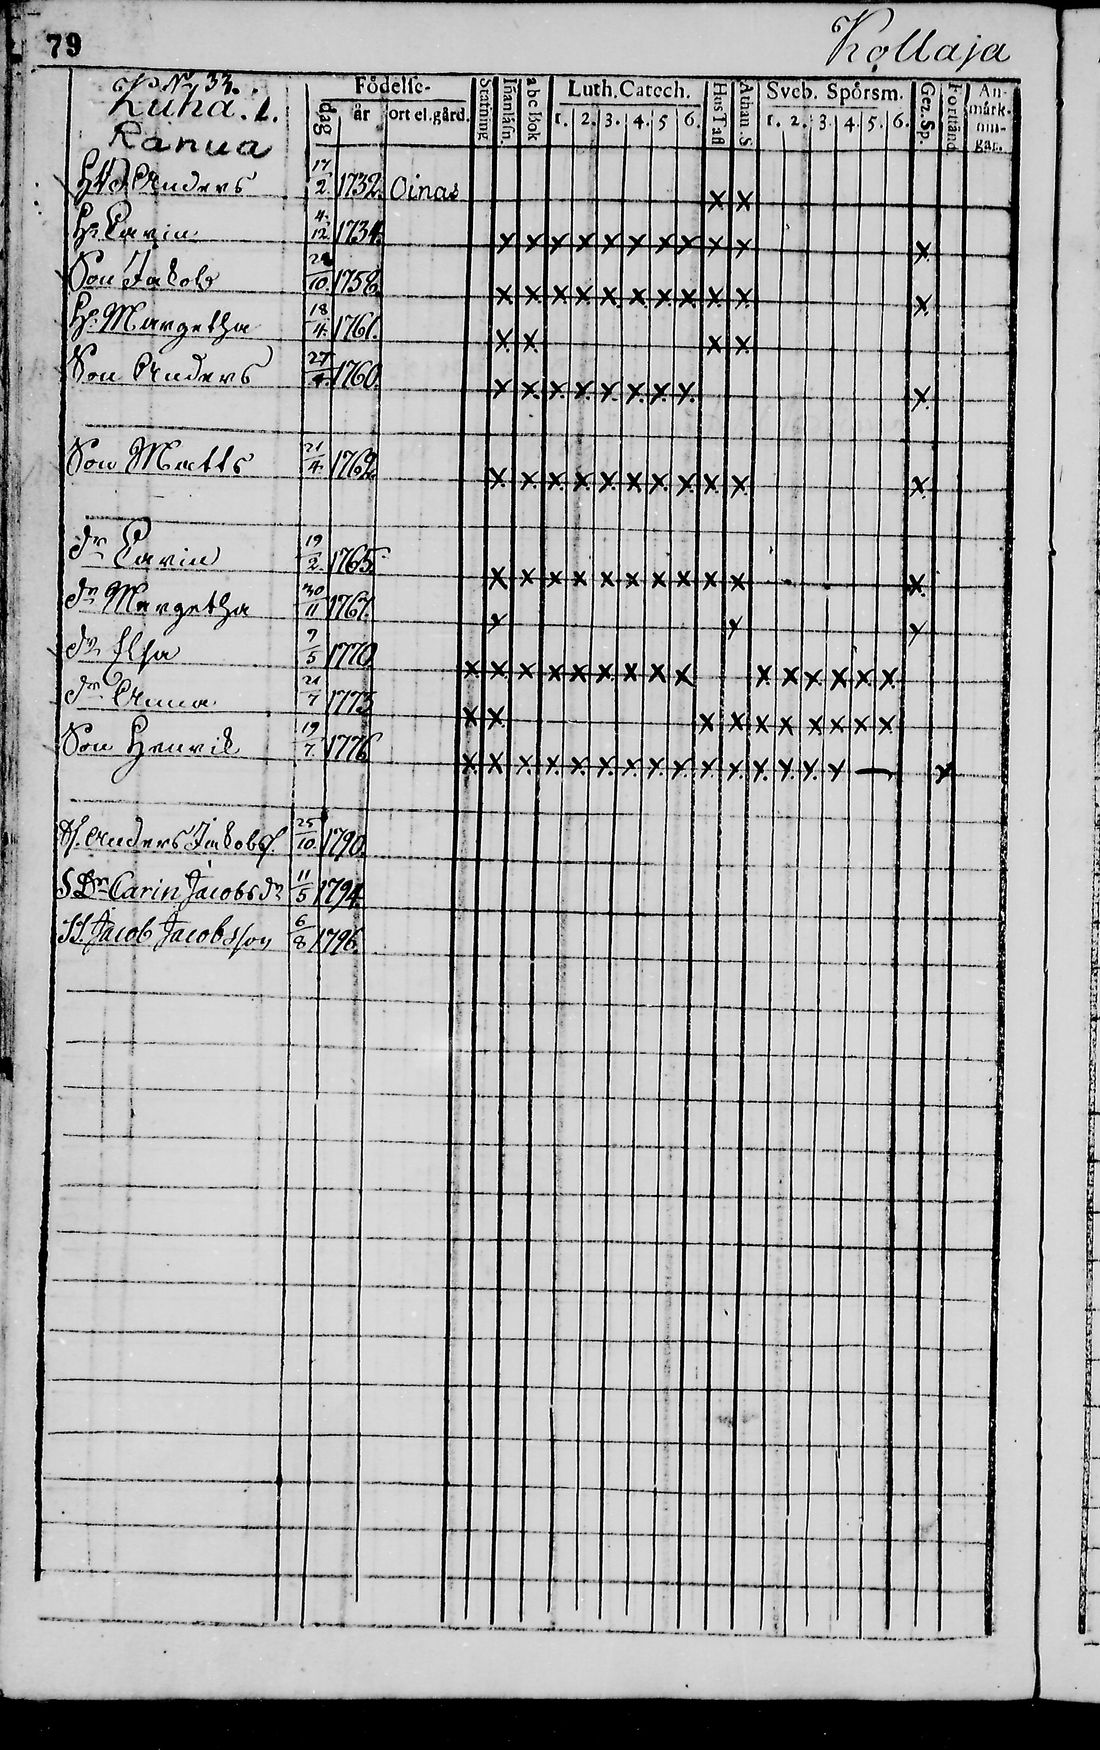 79
Kollaja
No 33.
Kuha. 1.
Ranua
Födelse-
dag
år
ort el. gård.
Stafning
Inanläsn.
abc Bok
Luth. Catech.
1. 2. 3. 4. 5 6.
Hus Tafl
Athan. S
Sveb. Spörsm.
1. 2. 3. 4. 5. 6.
Gez. Sp.
Forstånd
An-
märk-
nin-
gar.
Anders 17/2 1732. Oinas x x
H. Carin 4/12 1734. x x x x x x x x x x x
Son Jakob 10. 1758. x x x x x x x x x x x
H. Margetha 18/4. 1761. x x x x
Son Anders 27/4. 1760. x x x x x x x x x
Son Matts 21/4. 1762. x x x x x x x x x x x
dr Carin 19/2. 1765. x x x x x x x x x x x
dr Margetha 30/11 1767. x x x
dr Elsa 9/5 1770. x x x x x x x x x x x x x x x
dr Anna 21/7 1773 x x x x x x x x x x
Son Henrik 19/7. 1776 x x x x x x x x x x x x x x x — x
Anders Jakobs. 25/10. 1790.
S. Dr Carin Jacobsdr 11/5 1794.
SS. Jacob Jacobsson 6/8 1796.